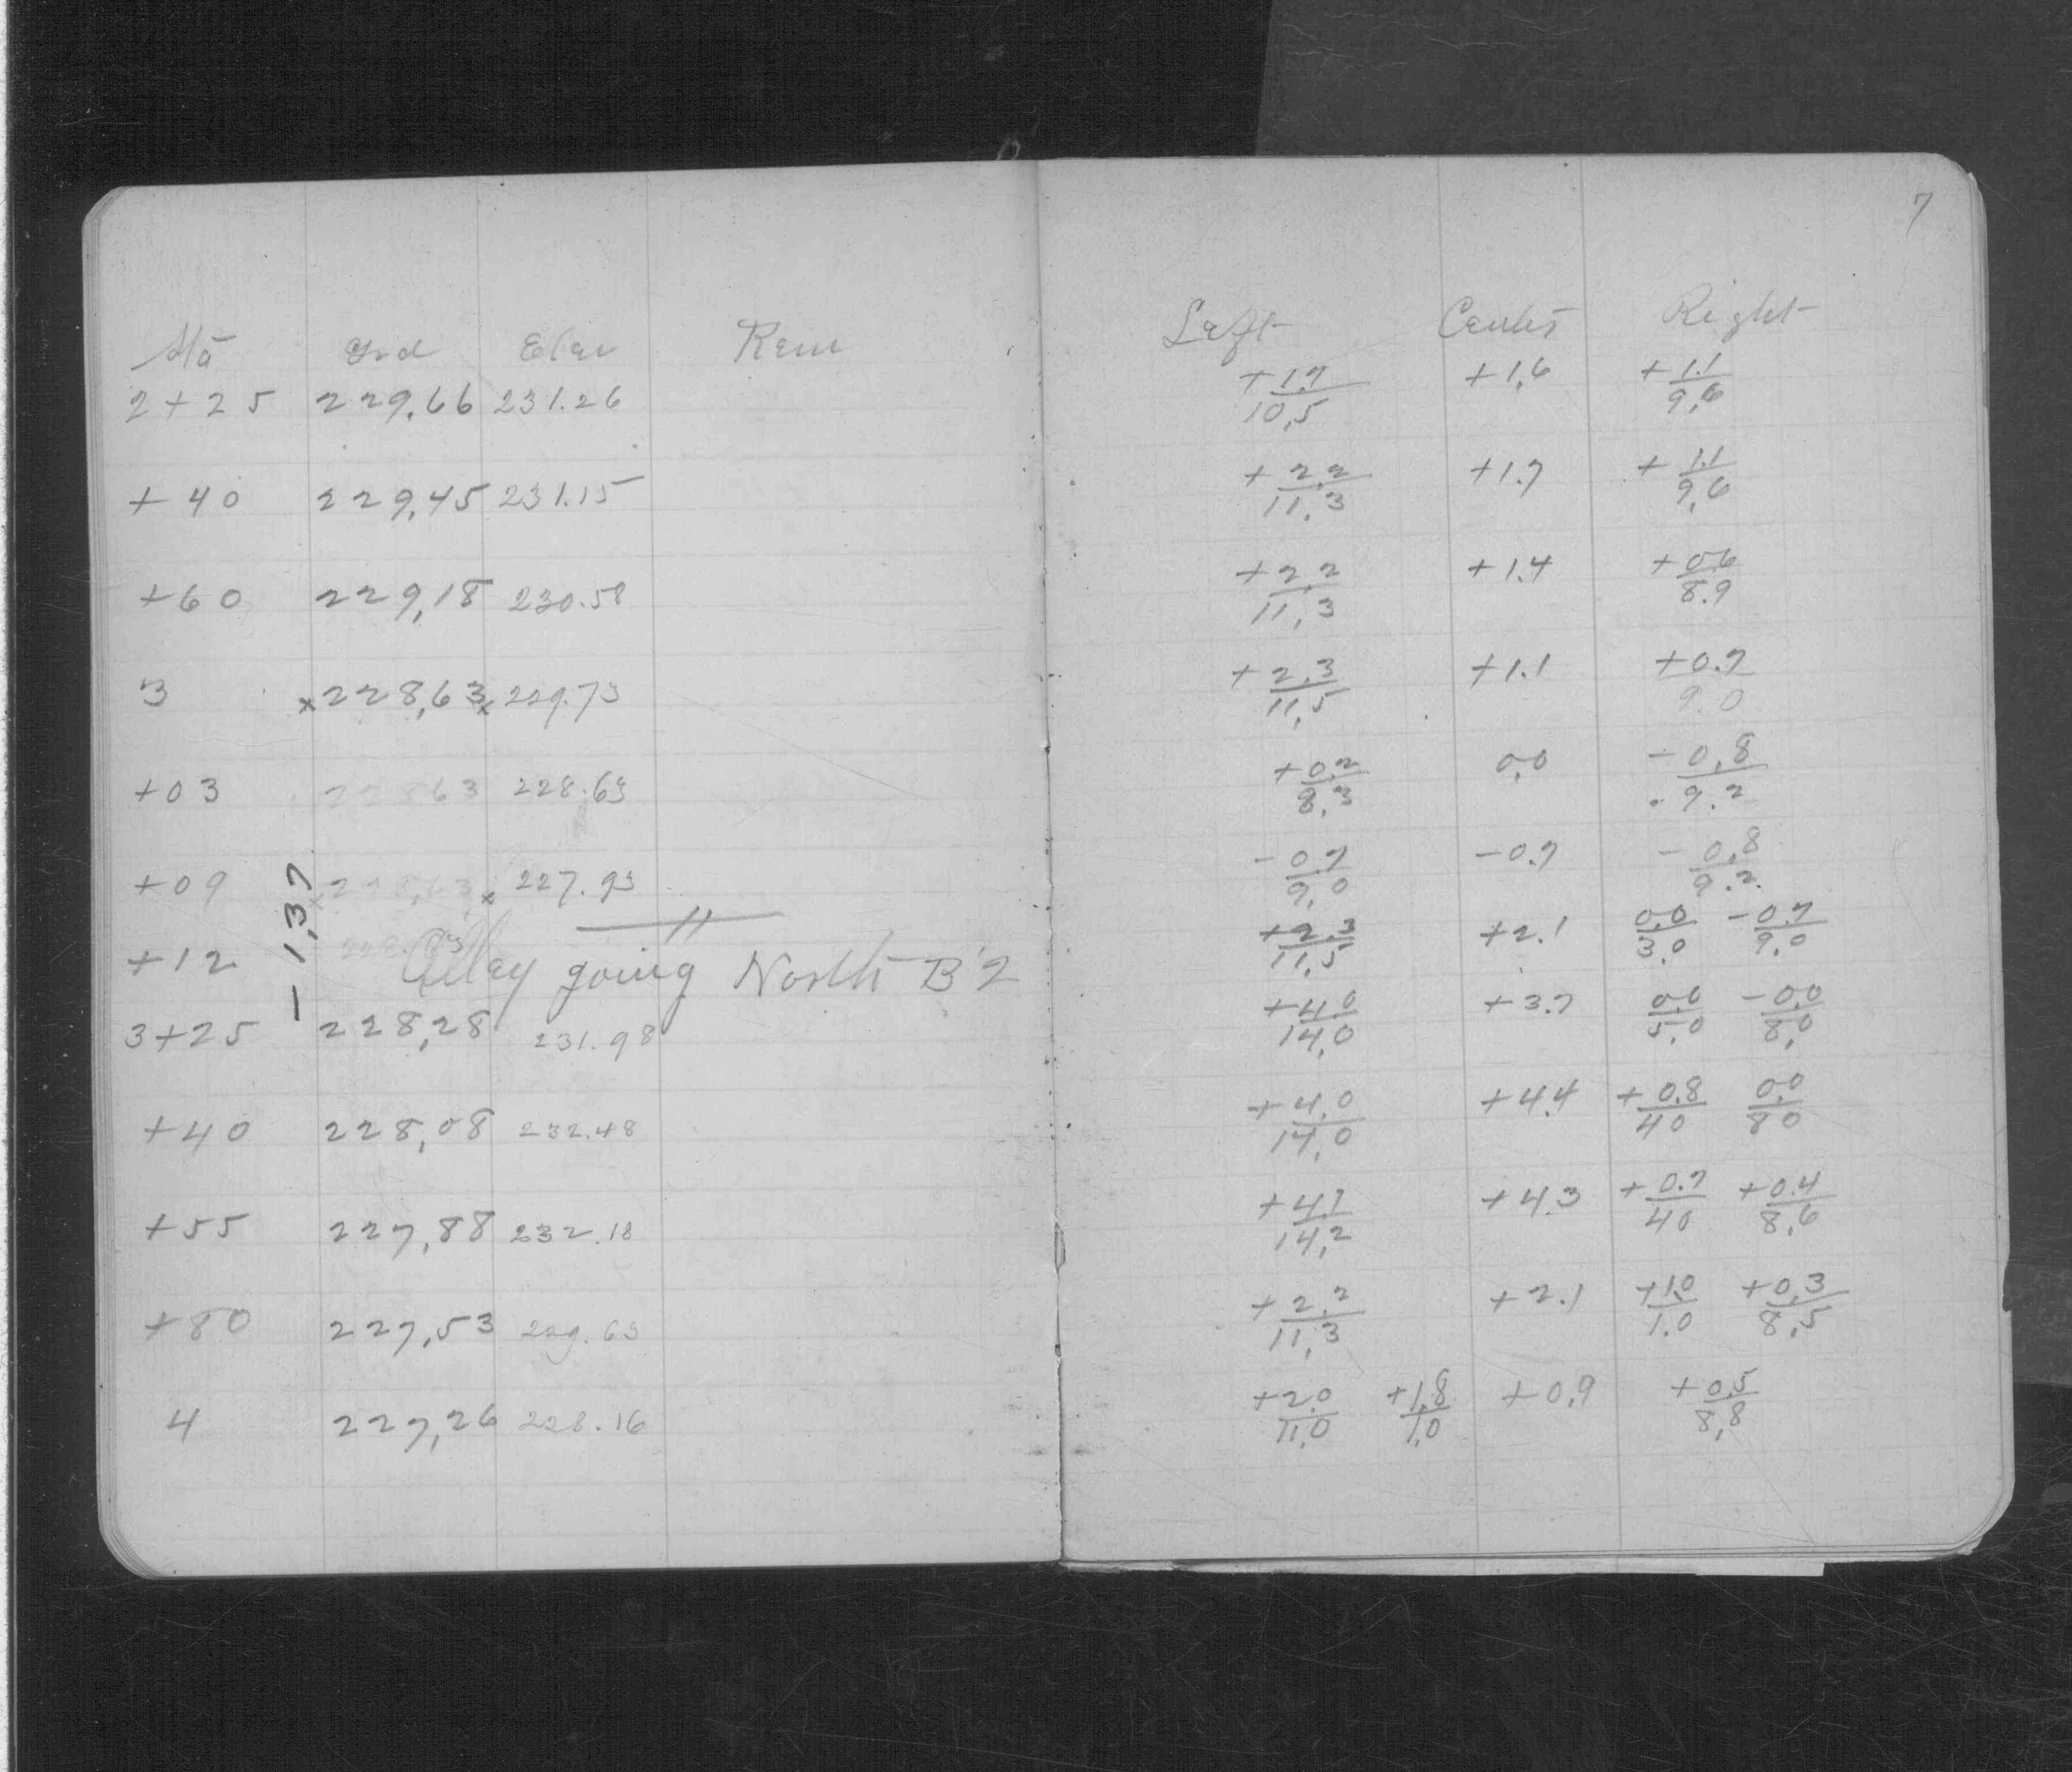 7
Sta Grd Elev Rem Left Center Right
2+25 229,66 231.26 +1.7/10,5 +1,6 +1.1/9,6
+40 229,45 231.15 +2,2/11,3 +1.7 +1.1/9,6
+60 229,18 230.58 +2,2/11,3 +1.4 +0.6/8.9
3 x228,63x 229.73 +2,3/11,5 +1.1 +0.7/9.0
+03 228 63 228.63 +0,2/8,3 0,0 -0,8/9.2
+09 x228,63x 227.93 -0,7/9,0 -0.7 -0,8/9.2
-1,37
+12 +2,3/11,5 +2.1 0,0/3,0 -0,7/9,0
Alley going North B'2
3+25 228,28 231.98 +4,0/14,0 +3.7 0,0/5,0 -0,0/8,0
+40 228,08 232.48 +4,0/14,0 +4.4 +0.8/40 0,0/80
+55 227,88 232.18 +4,1/14,2 +4.3 +0.7/40 +0.4/8,6
+80 227,53 229.63 +2,2/11,3 +2.1 +1.0/1.0 +0,3/8,5
4 227,26 228.16 +2.0/11,0 +1,8/1,0 +0,9 +0,5/8,8